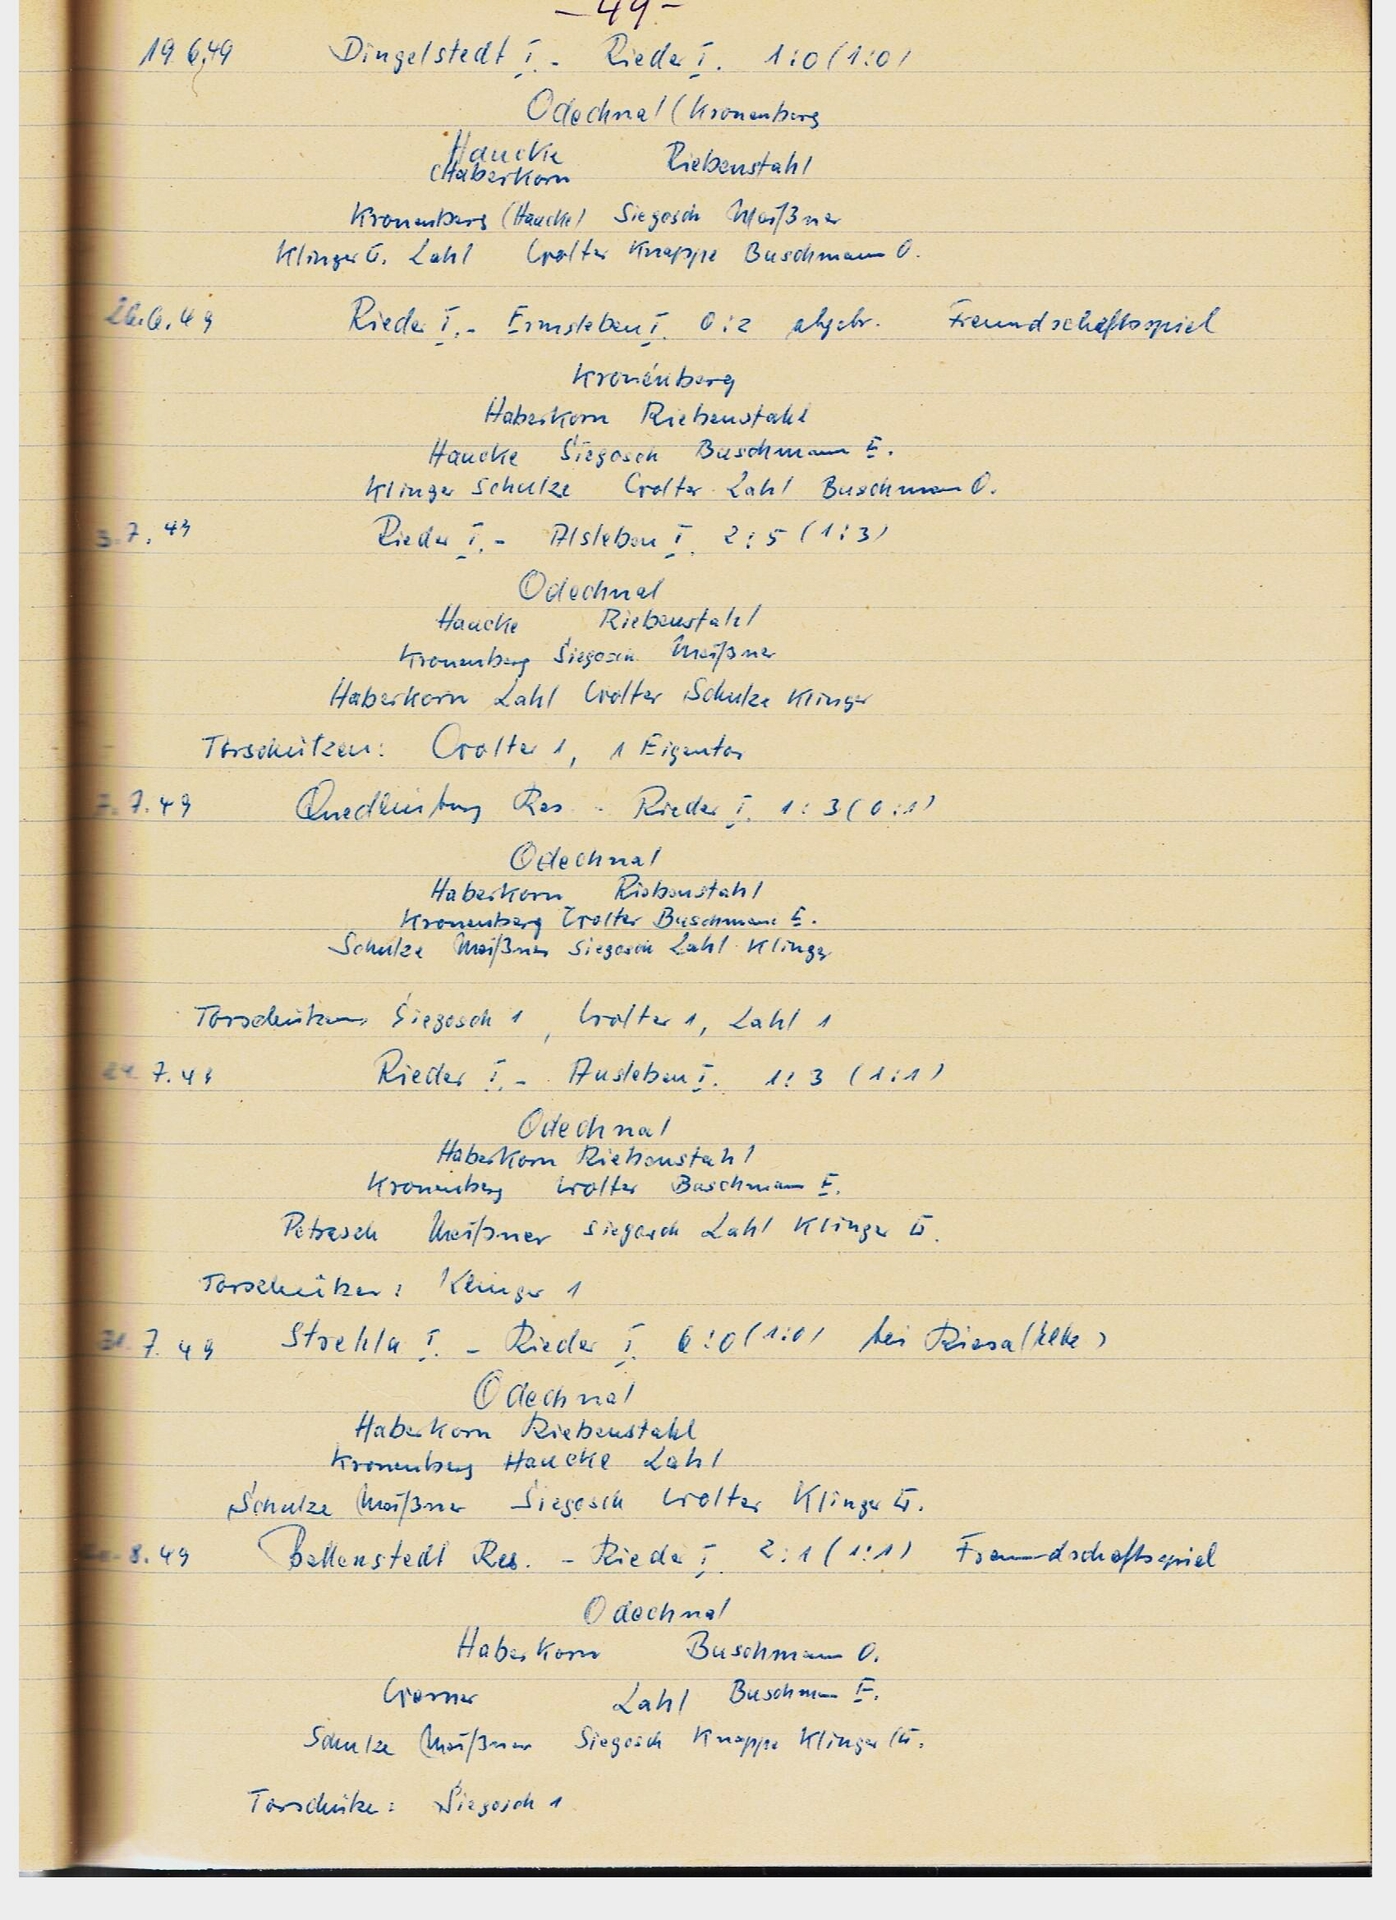 - 49 -
19.6.49 Dingelstedt I. - Rieder I. 1:0 (1:0)
Odechnal (Kronenberg
Haucke Riebenstahl
(Haberkorn
Kronenberg (Haucke) Siegosch Meißner
Klinger G. Lahl Wolter Knappe Buschmann O.
26.6.49 Rieder I. - Ermsleben I. 0:2 abgebr. Freundschaftsspiel
Kronenberg
Haberkorn Riebenstahl
Haucke Siegosch Buschmann E.
Klinger Schulze Wolter Lahl Buschmann O.
3.7.49 Rieder I. - Alsleben I. 2:5 (1:3)
Odechnal
Haucke Riebenstahl
Kronenberg Siegosch Meißner
Haberkorn Lahl Wolter Schulze Klinger
Torschützen: Wolter 1, 1 Eigentor
7.7.49 Quedlinburg Res. - Rieder I. 1:3 (0:1)
Odechnal
Haberkorn Riebenstahl
Kronenberg Wolter Buschmann E.
Schulze Meißner Siegosch Lahl Klinger
Torschützen Siegosch 1, Wolter 1, Lahl 1
24.7.49 Rieder I. - Ausleben I. 1:3 (1:1)
Odechnal
Haberkorn Riebenstahl
Kronenberg Wolter Buschmann E.
Petrasch Meißner Siegosch Lahl Klinger G.
Torschützer: Klinger 1
31.7.49 Strehla I. - Rieder I. 6:0 (1:0) bei Riesa (Elbe)
Odechnal
Haberkorn Riebenstahl
Kronenberg Haucke Lahl
Schulze Meißner Siegosch Wolter Klinger G.
8.49 Ballenstedt Res. - Rieder I. 2:1 (1:1) Freundschaftsspiel
Odechnal
Haberkorn Buschmann O.
Lahl Buschmann E.
Schulze Meißner Siegosch Knappe Klinger G.
Torschütze: Siegosch 1